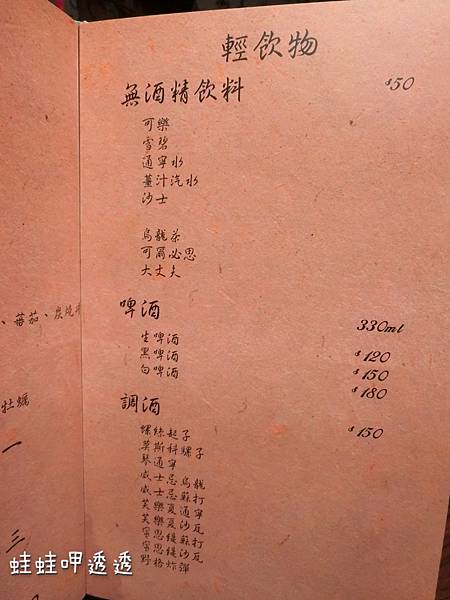 輕飲物
無酒精飲料 $50
可樂
雪碧
通寧水
薑汁汽水
沙士
烏龍茶
可爾必思
大丈夫
啤酒 330ml
生啤酒 $120
黑啤酒 $150
白啤酒 $180
調酒 $150
螺絲起子
莫斯科騾子
琴通寧
威士忌烏龍
威士忌蘇打
芙樂夏通寧
芙樂夏沙瓦
宇思緹蘇打
宇思緹沙瓦
野格炸彈
、蕃茄、炭燒
牡蠣
一
三
蛙蛙呷透透